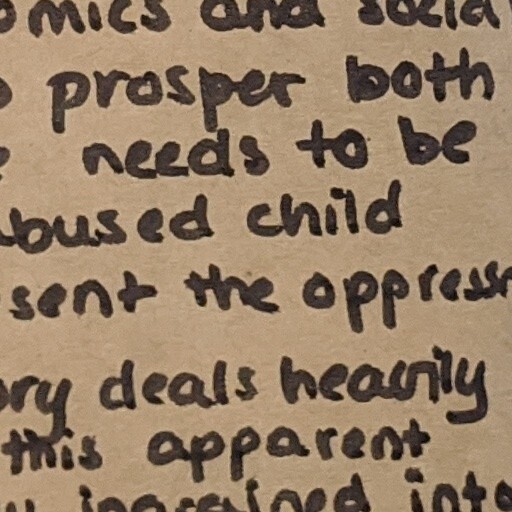 omics and social
prosper both
needs to be
abused child
sent the oppress
ory deals heavily
this apparent
ingrained into